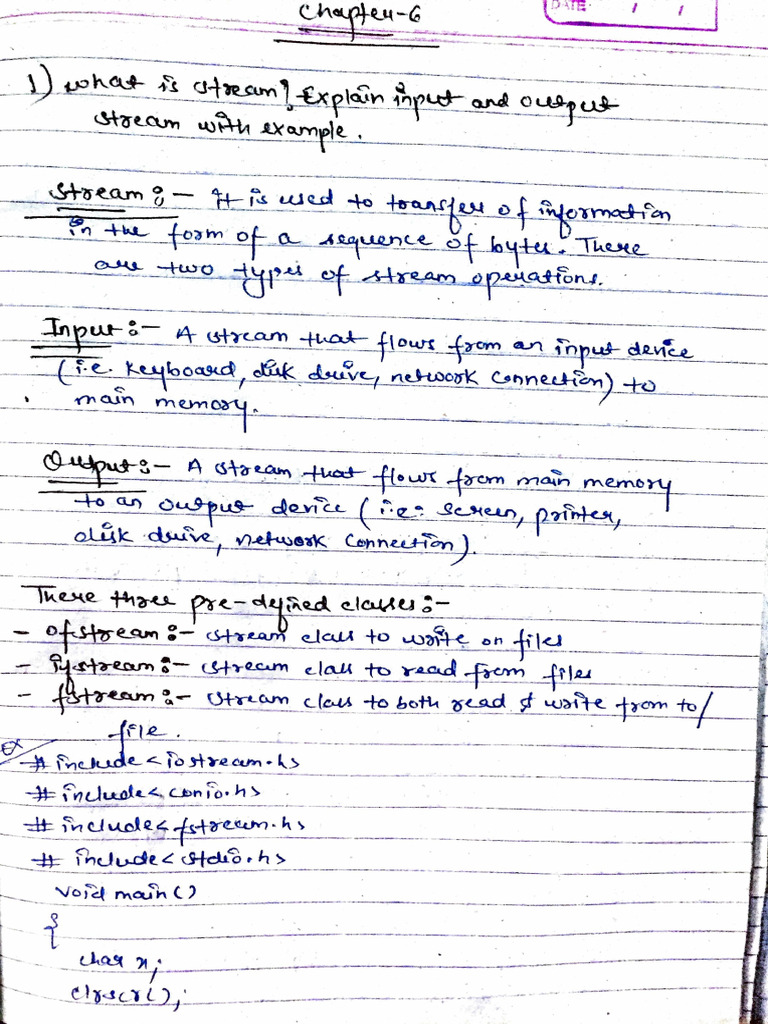 Chapter-6
DATE: / /
1) What is stream? Explain input and output
stream with example.
Stream:- It is used to transfer of information
in the form of a sequence of bytes. There
are two types of stream operations.
Input:- A stream that flows from an input device
(i.e. Keyboard, disk drive, network connection) to
main memory.
Output:- A stream that flows from main memory
to an output device (i.e. screen, printer,
disk drive, network connection).
There three pre-defined classes:-
- ofstream:- stream class to write on files
- ifstream:- stream class to read from files
- fstream:- stream class to both read & write from to/
file.
Ex
# include<iostream.h>
# include<conio.h>
# include<fstream.h>
# include<stdio.h>
void main()
{
char x;
clrscr();